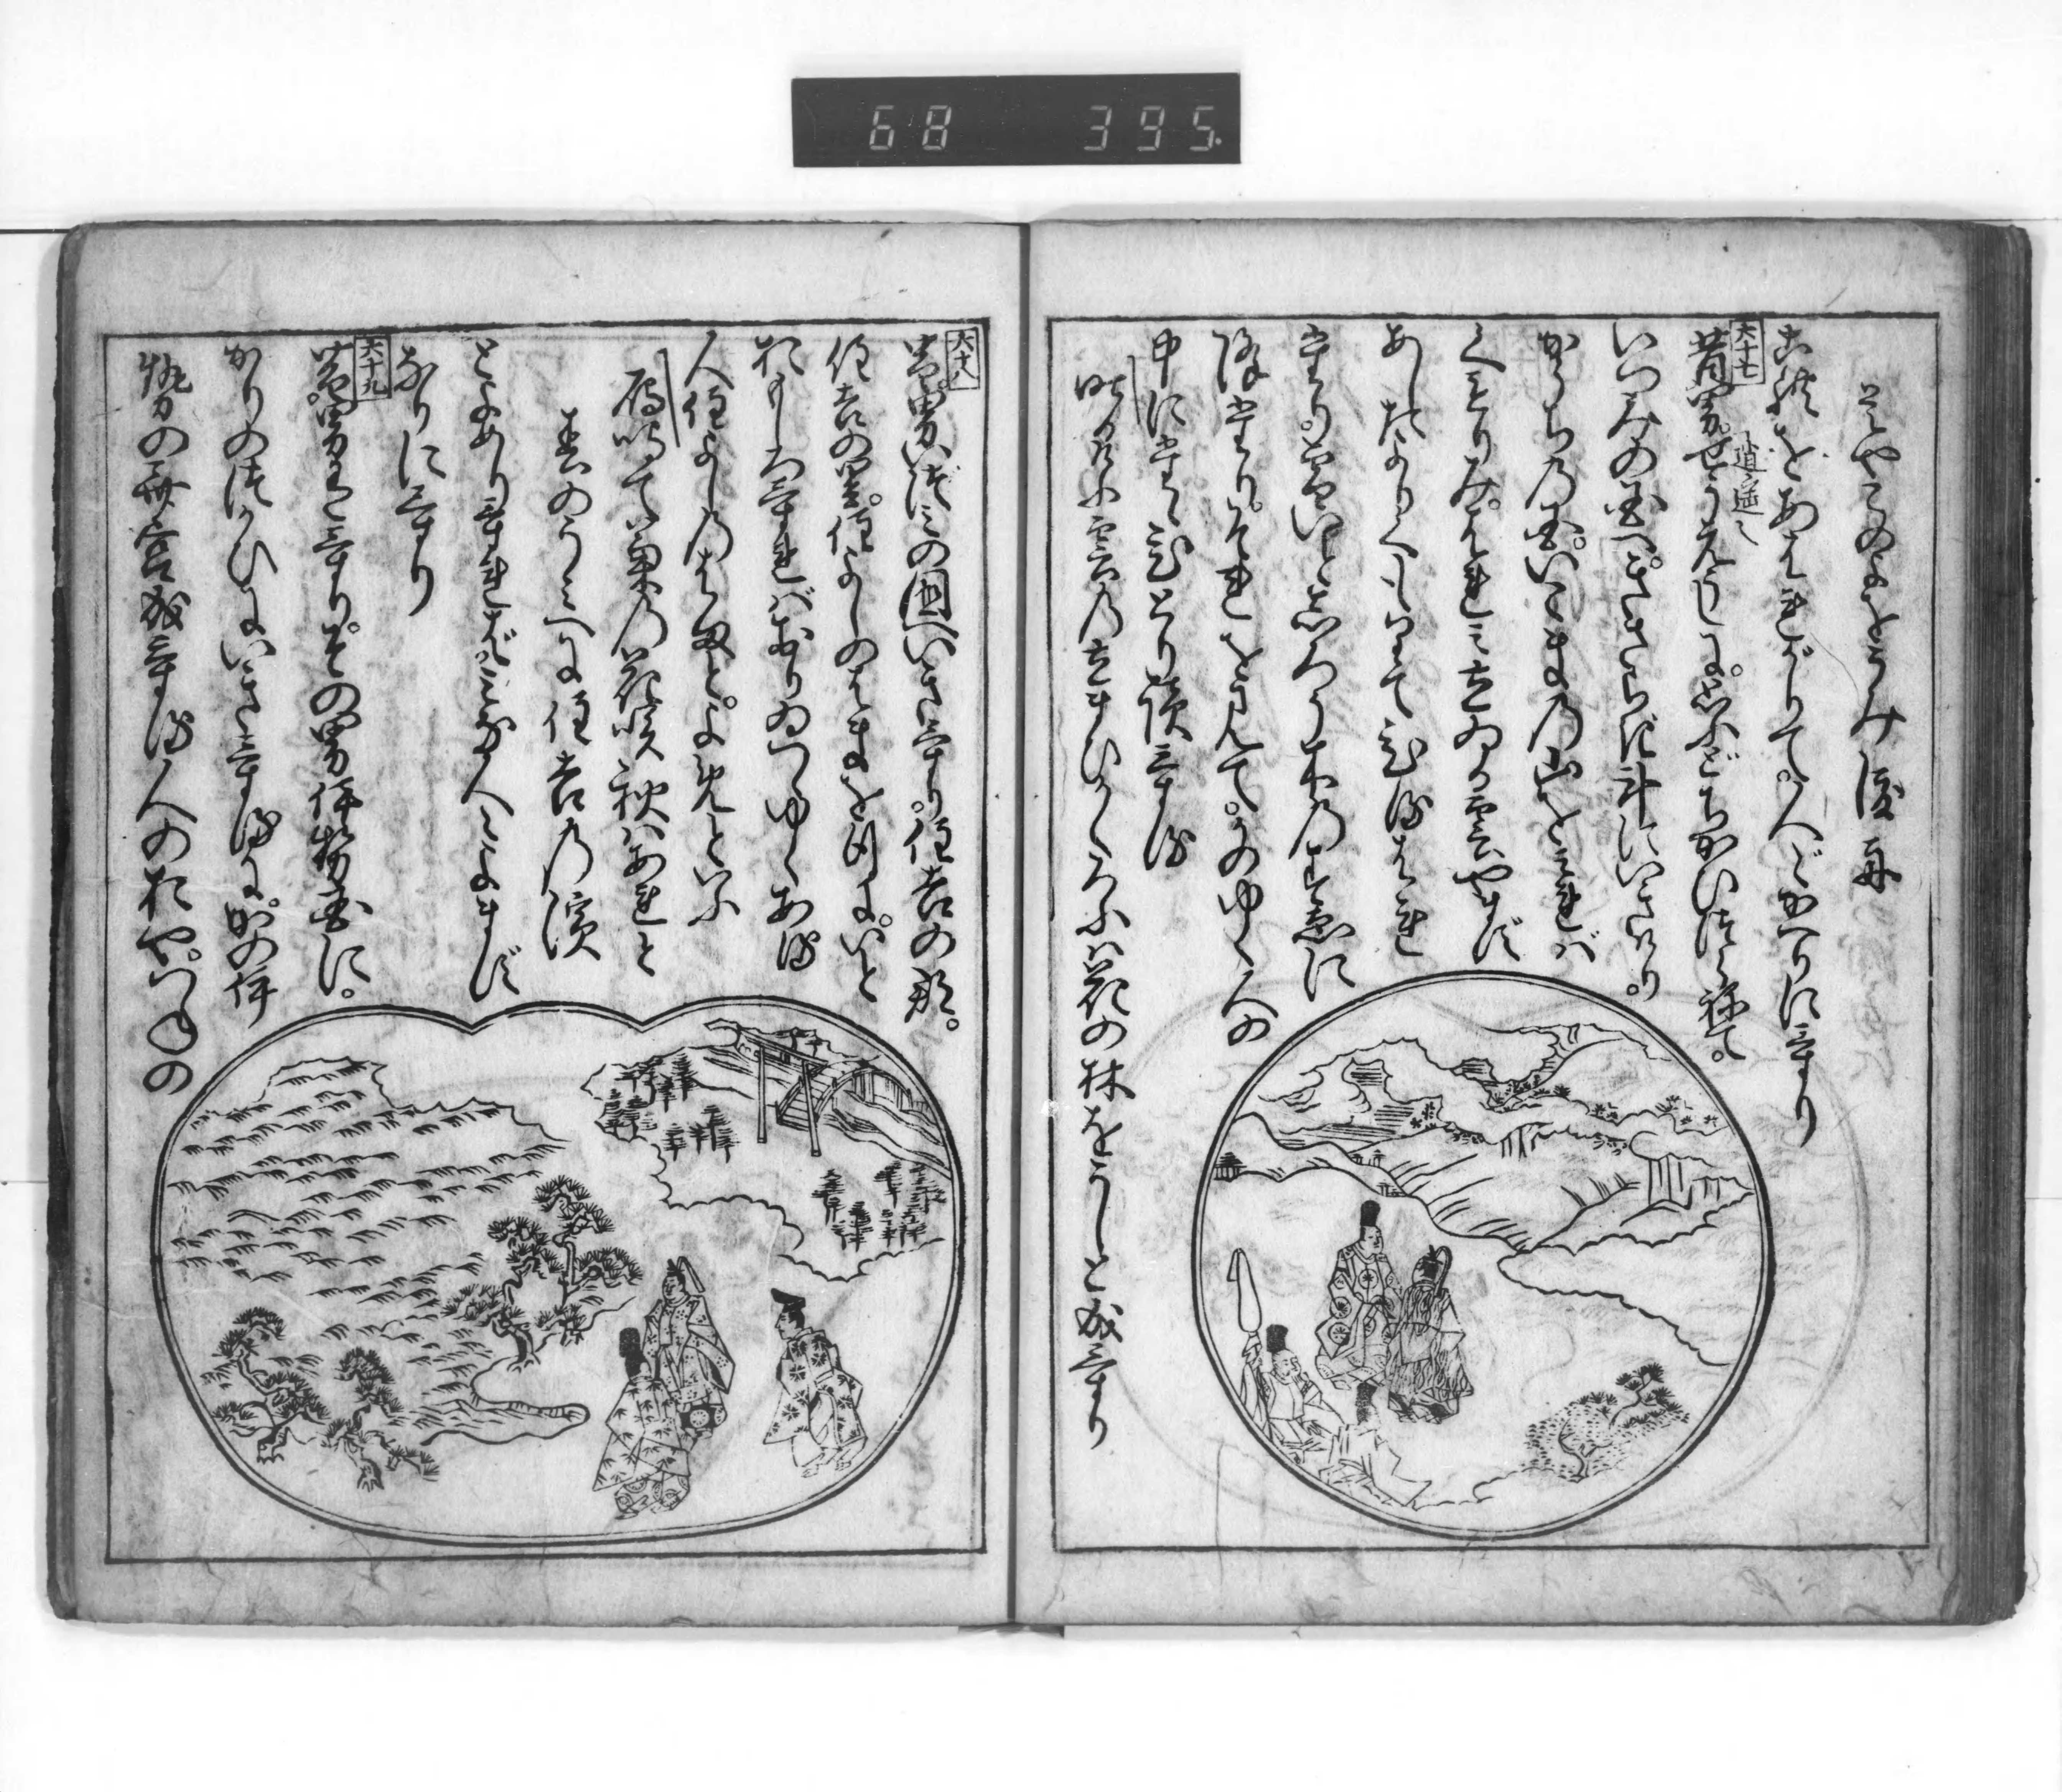 68 395
是やこのよをうみ渡る舟
これをあはれがりて。人〴〵かへりにけり
六十七
昔男せうえうしに。思ふどちかいつらねて。
逍遥
いつみの国へ。きさらぎ計にいきけり。
かうちの国。いこまの山を見れば
くもりみ。はれみ立ゐる雲やまず
あしたよりくもりて。ひるはれ
たり。雪いとしろう木のすゑに
降たり。それを見て。かのゆく人の
中にたゞひとり讀ける
昨日けふ雲の立まひかくろふハ花の林をうしと成けり
六十八
昔男いづみの国へいきけり。住吉の郡。
住吉の里。住よしのはまを行に。いと
おもしろければおりゐつゝゆく。ある
人住よしのはまと。よめといふ
鴈鳴て菊の花咲秋ハあれと
春のうみへに住吉の濱
とよめりければ。みな人〻よまず
なりにけり
六十九
昔男有けり。その男伊勢国に。
かりの使ひにいきけるに。かの伊
勢の斎宮成ける人のおや。つねの